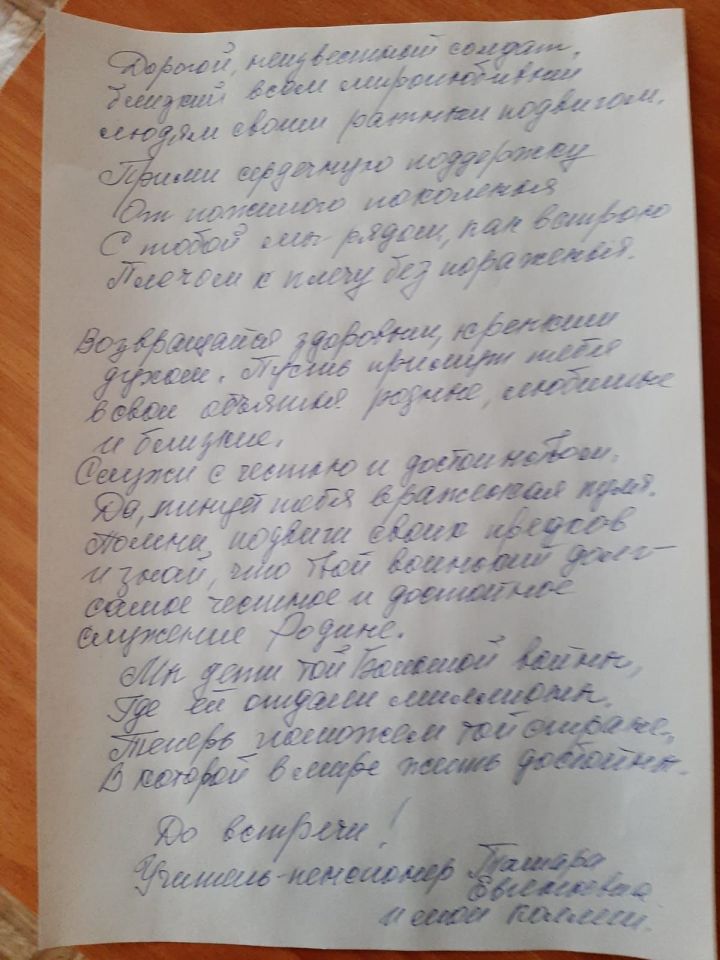 Дорогой, неизвестный солдат,
близкий всем миролюбивым
людям своим ратным подвигом.
Прими сердечную поддержку
От пожилого поколенья
С тобой мы рядом, как в строю
Плечом к плечу без пораженья.
Возвращайся здоровым, крепким
духом. Пусть примут тебя
в свои объятия родные, любимые
и близкие.
Служи с честью и достоинством.
Да, минует тебя вражеская пуля.
Помни, подвиги своих предков
и знай, что твой воинский долг-
самое честное и достойное
служение Родине.
Мы дети той Большой войны,
Где ей отдали миллионы.
Теперь поможем той стране,
В которой в мире жить достойны.
До встречи!
Учитель-пенсионер Тамара
Евгеньевна
и мои коллеги.